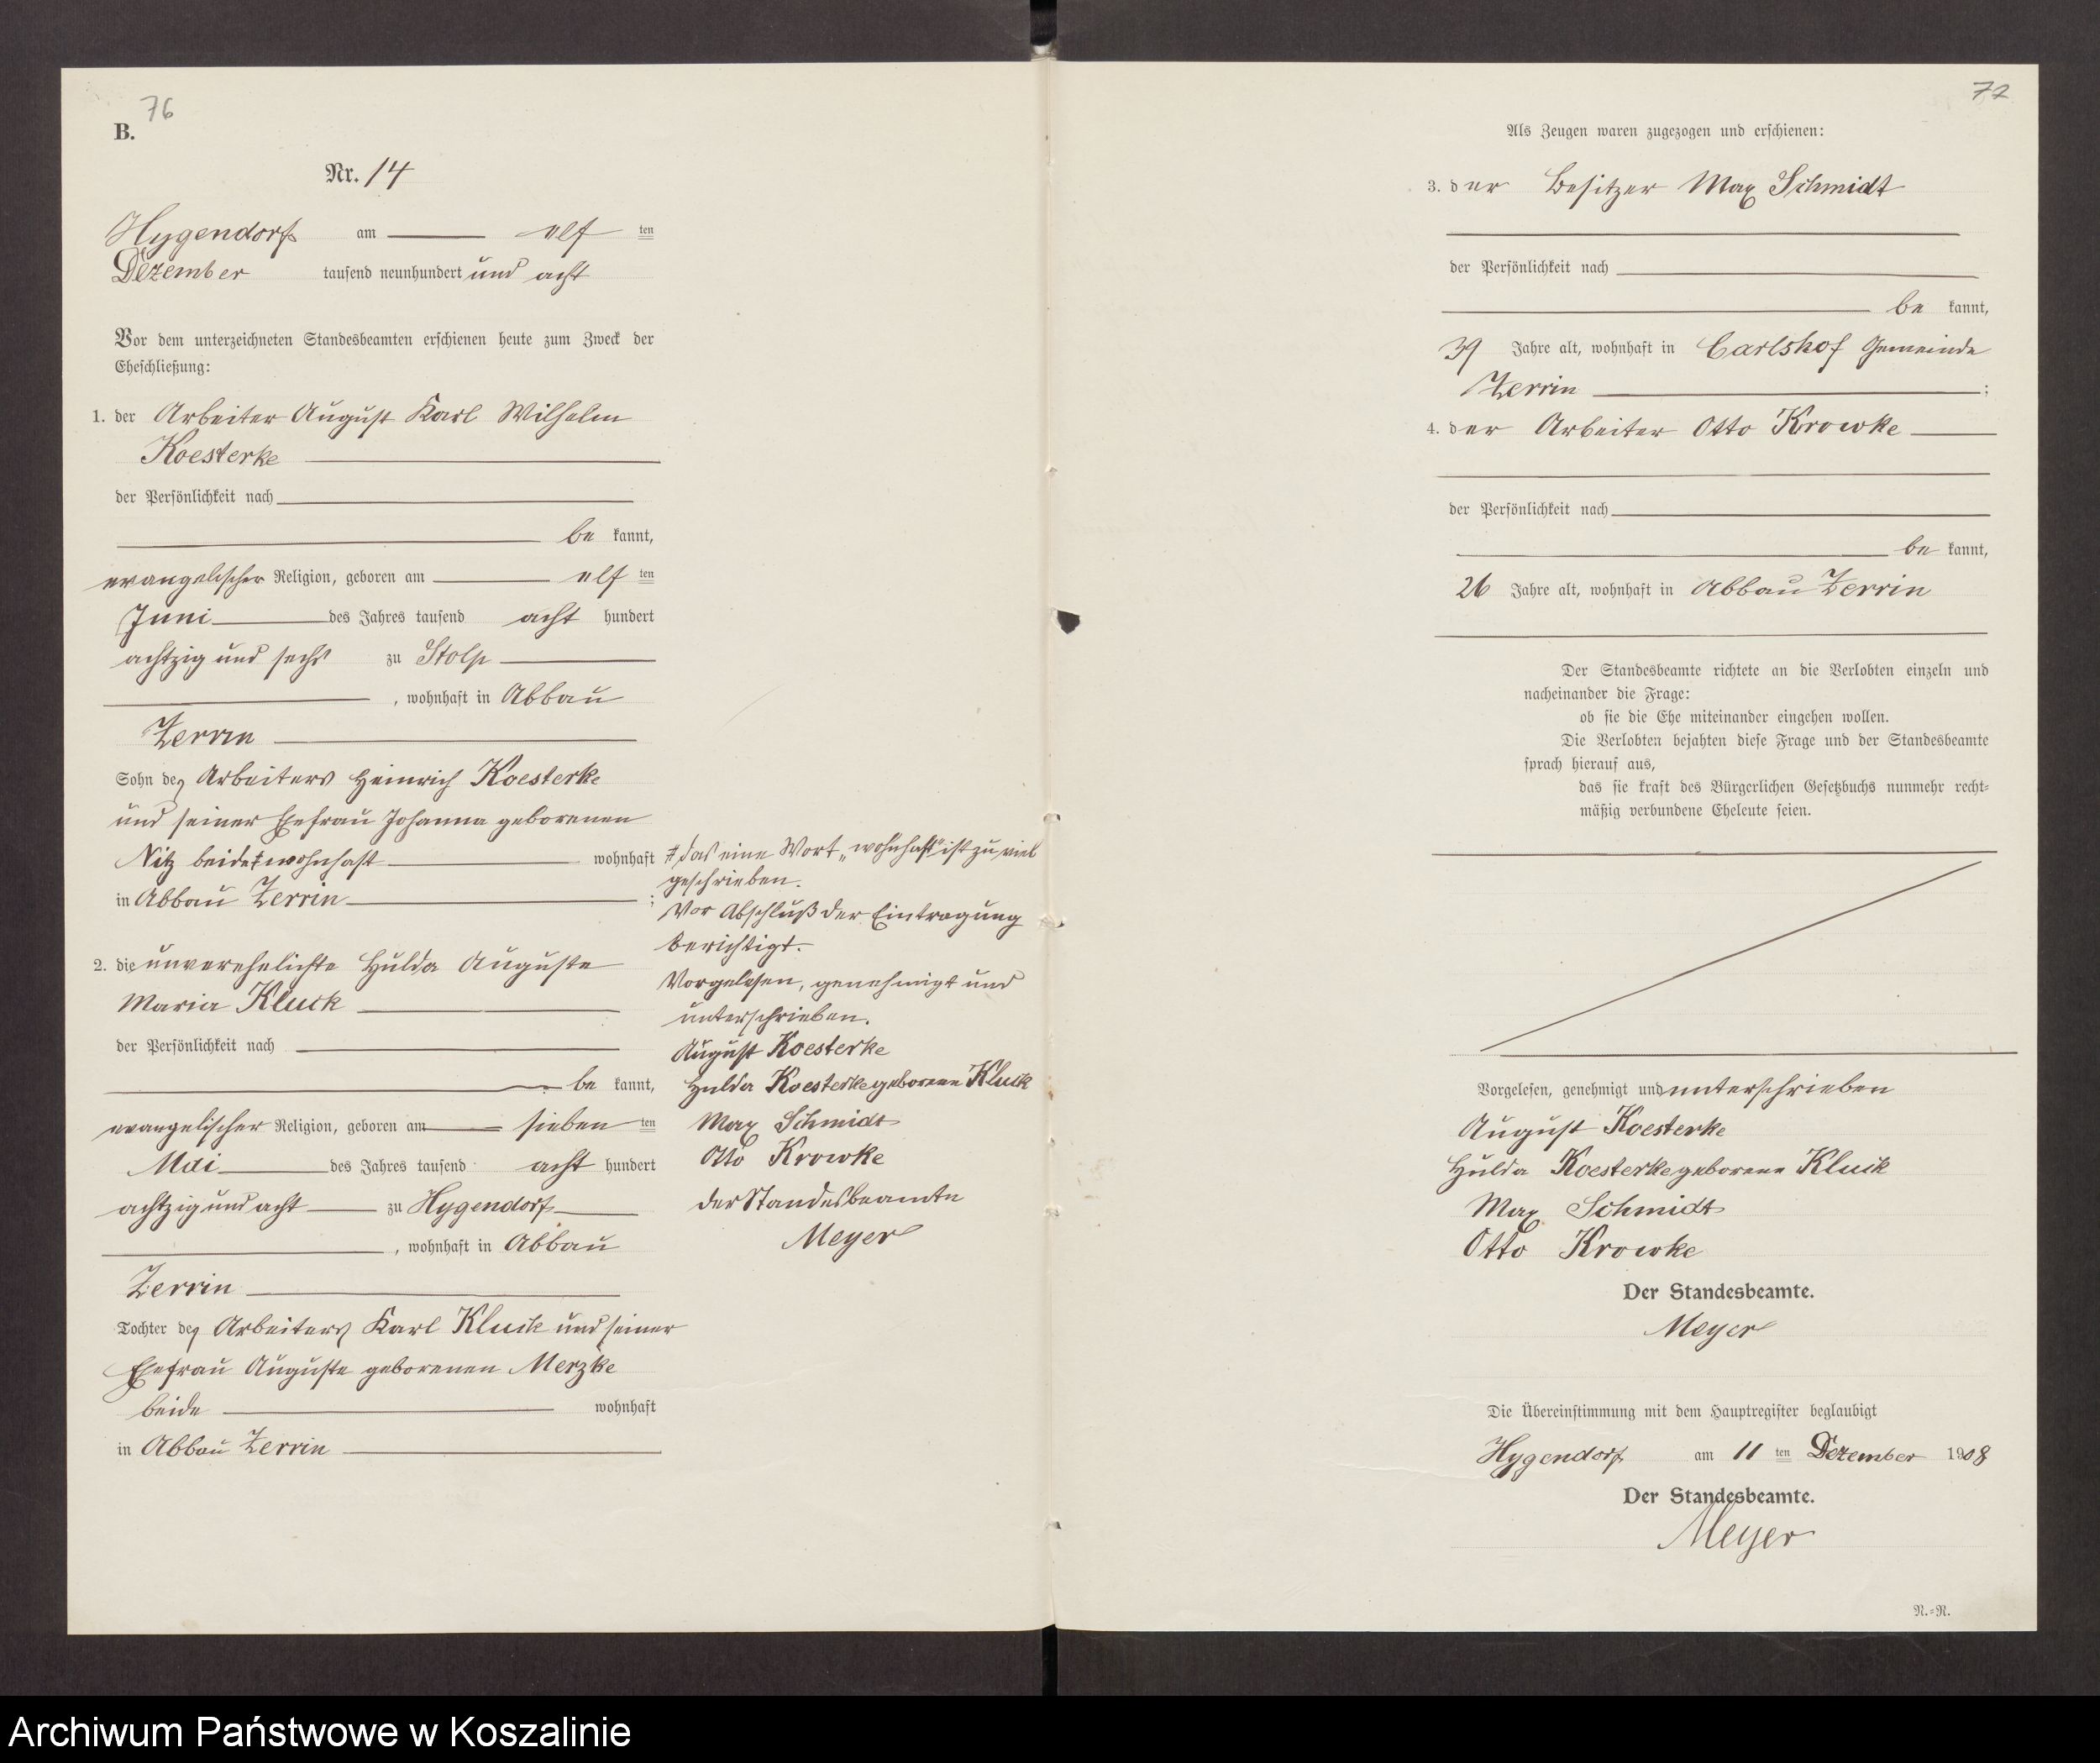 76
B.
Nr. 14
Hygendorf am elf ten
Dezember tausend neunhundert und acht
Vor dem unterzeichneten Standesbeamten erschienen heute zum Zweck der
Eheschließung:
1. der Arbeiter August Karl Wilhelm
Koesterke
der Persönlichkeit nach
be kannt,
evangelischer Religion, geboren am elf ten
Juni des Jahres tausend acht hundert
achtzig und sechs zu Stolp
, wohnhaft in Abbau
Zerrin
Sohn des Arbeiters Heinrich Koesterke
und seiner Ehefrau Johanna geborenen
Nitz beide ‡ wohnhaft wohnhaft
in Abbau Zerrin ;
2. die unverehelichte Hulda Auguste
Maria Kluck
der Persönlichkeit nach
be kannt,
evangelischer Religion, geboren am sieben ten
Mai des Jahres tausend acht hundert
achtzig und acht zu Hygendorf
, wohnhaft in Abbau
Zerrin
Tochter des Arbeiters Karl Kluck und seiner
Ehefrau Auguste geborenen Merzke
beide wohnhaft
in Abbau Zerrin
‡ das eine Wort „wohnhaft" ist zu viel
geschrieben.
Vor Abschluß der Eintragung
berichtigt.
Vorgelesen, genehmigt und
unterschrieben.
August Koesterke
Hulda Koesterke geborene Kluck
Max Schmidt
Otto Krowke
der Standesbeamte
Meyer
77
Als Zeugen waren zugezogen und erschienen:
3. der Besitzer Max Schmidt
der Persönlichkeit nach
be kannt,
39 Jahre alt, wohnhaft in Carlshof Gemeinde
Zerrin ;
4. der Arbeiter Otto Krowke
der Persönlichkeit nach
be kannt,
26 Jahre alt, wohnhaft in Abbau Zerrin
Der Standesbeamte richtete an die Verlobten einzeln und
nacheinander die Frage:
ob sie die Ehe miteinander eingehen wollen.
Die Verlobten bejahten diese Frage und der Standesbeamte
sprach hierauf aus,
das sie kraft des Bürgerlichen Gesetzbuchs nunmehr recht-
mäßig verbundene Eheleute seien.
Vorgelesen, genehmigt und unterschrieben
August Koesterke
Hulda Koesterke geborene Kluck
Max Schmidt
Otto Krowke
Der Standesbeamte.
Meyer
Die Übereinstimmung mit dem Hauptregister beglaubigt
Hygendorf am 11 ten Dezember 1908
Der Standesbeamte.
Meyer
N.=N.
Archiwum Państwowe w Koszalinie